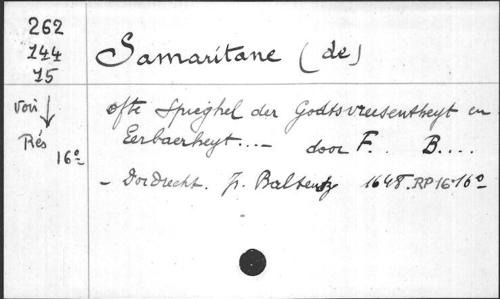 262
144
15
Samaritane (de)
voir
Rés
16º
ofte Spieghel der Godtsvreesentheyt en
Eerbaerheyt... door F. B....
- Dordrecht. J. Baltensz 1648. RP16-16º